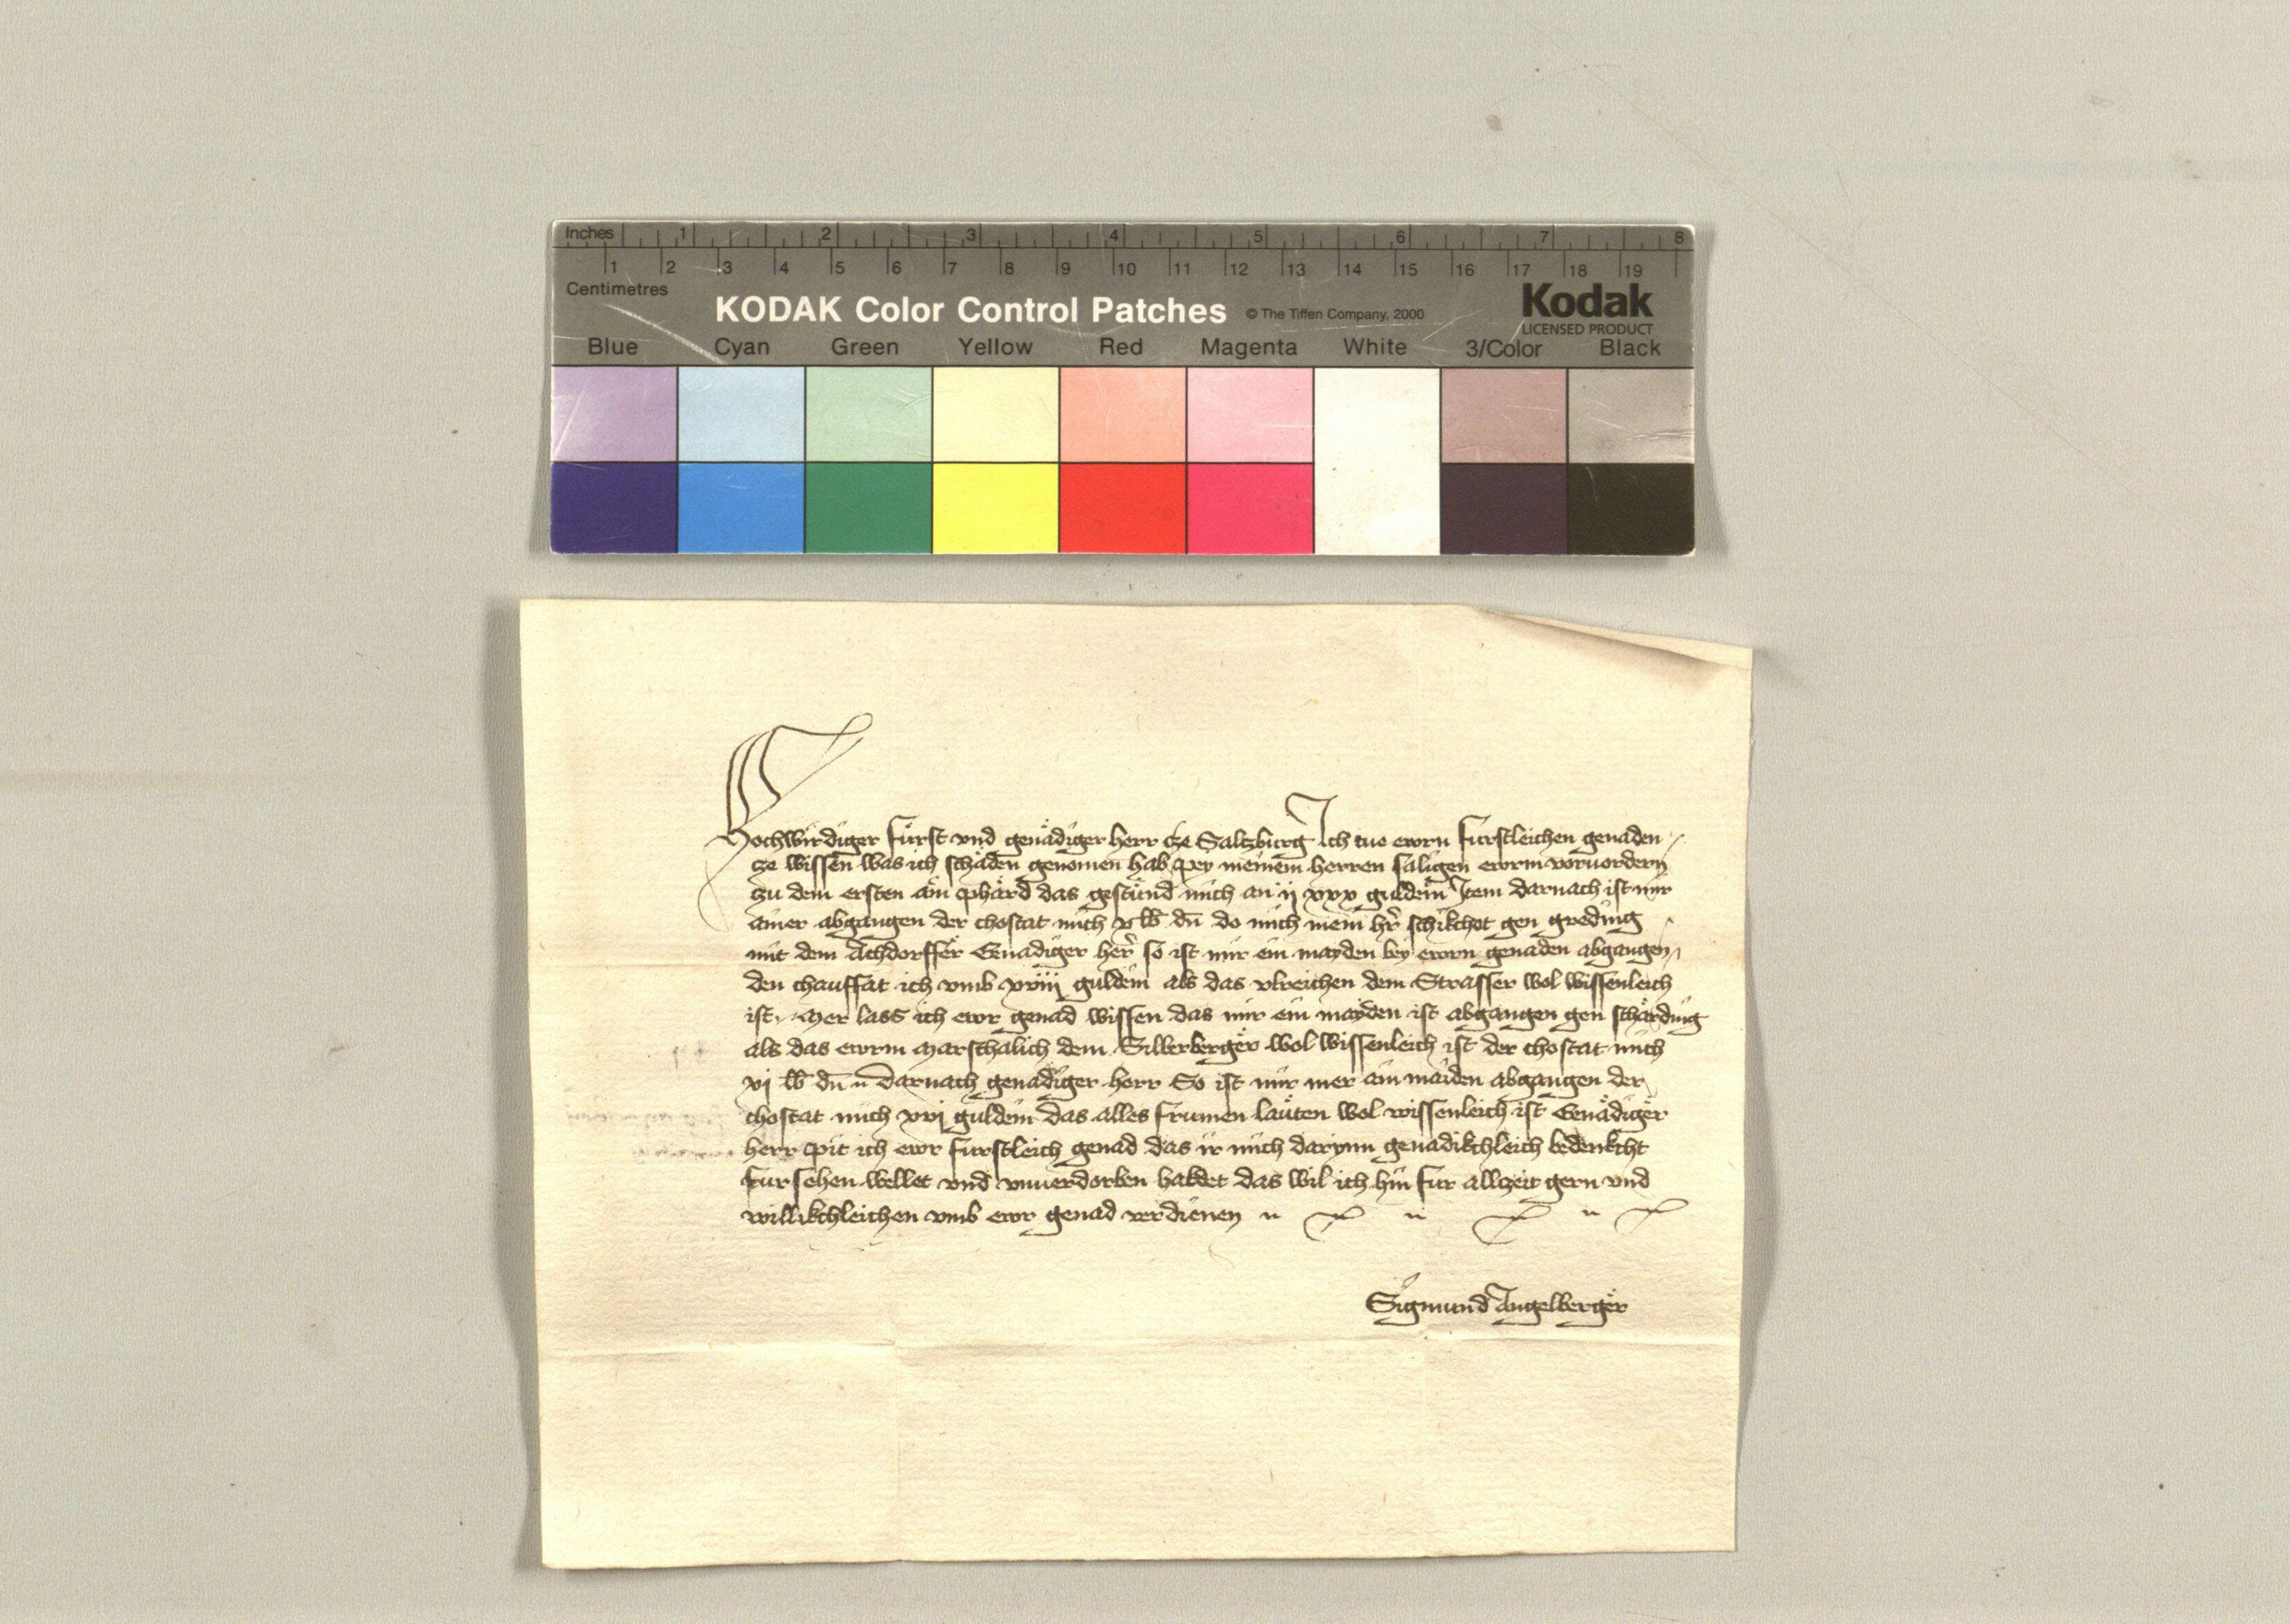 Inches 1 2 3 4 5 6 7 8
1 2 3 4 5 6 7 8 9 10 11 12 13 14 15 16 17 18 19
Centimetres
KODAK Color Control Patches © The Tiffen Company, 2000 Kodak
LICENSED PRODUCT
Blue Cyan Green Yellow Red Magenta White 3/Color Black
Hochwirdiger fürst vnd genädiger herr cze Saltzburg Ich tue ewrn furstleichen genaden
ze wissen was ich schäden genomen hab pey meinem herren säligen ewrm voruordern
zu dem ersten äin phärd das geständ mich an ij xxx guldein Item darnach ist mir
ainer abgangen der chostat mich x lb dn̄ do mich mein hr̄ schikchet gen greding
mit dem Achdorffer Genadiger her̄ so ist mir ein mayden bey ewrn genaden abgangen
den chauffat ich vmb xviij guldein als das vlreichen dem Strasser wol wissenleich
ist Mer lass ich ewr genad wissen das mir ein mayden ist abgangen gen schärding
als das ewrm Marschalich dem Silberberger wol wissenleich ist der chostat mich
xj lb dn̄ darnach genadiger herr So ist mir mer ain maiden abgangen der
chostat mich xvj guldein das alles frumen läuten wol wissenleich ist Genädiger
herr pit ich ewr furstleich genad das ir mich darynn genadikchleich bedenkcht
fursehen wellet vnd vnuerdorben haldet das wil ich hin fur allzeit gern vnd
willikchleichen vmb ewr genad verdienen
Sigmund Angelberger